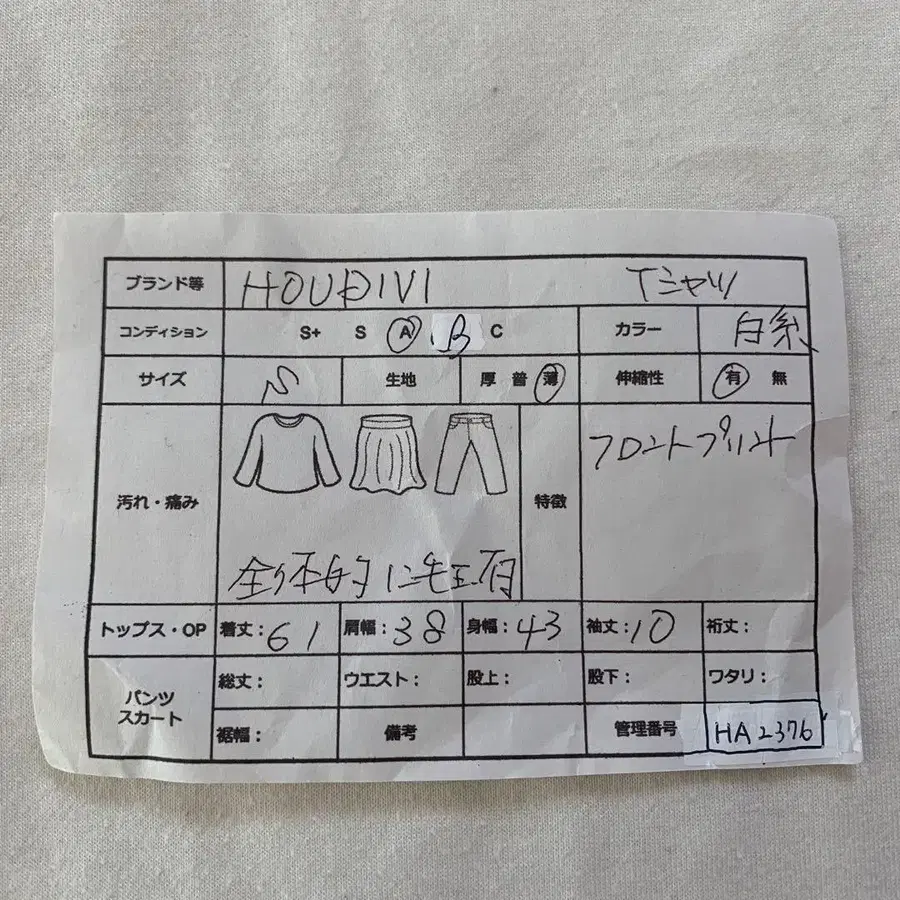 ブランド等 HOUDIVI Tシャツ
コンディション S+ S A B C カラー 白系
サイズ S 生地 厚 普 薄 伸縮性 有 無
汚れ・痛み 全体的に毛玉有 特徴 フロントプリント
トップス・OP 着丈:61 肩幅:38 身幅:43 袖丈:10 裄丈:
パンツ スカート 総丈: ウエスト: 股上: 股下: ワタリ:
裾幅: 備考 管理番号 HA2376